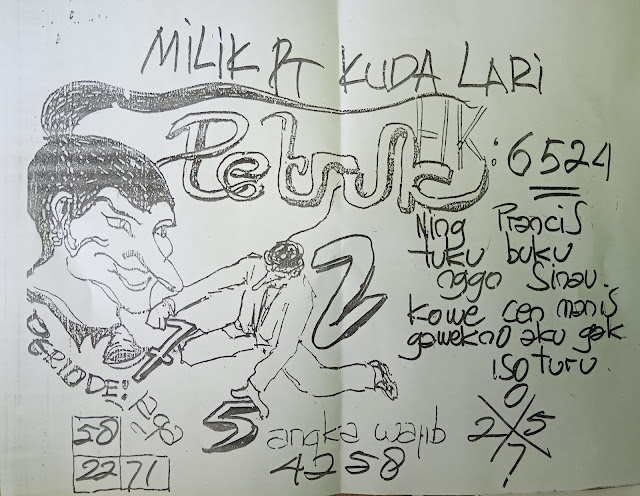 MILIK PT KUDA LARI
Petruk
HK: 6524
Ning Prancis
tuku buku
nggo Sinau.
Kowe cen manis
gawekno aku gak
iso turu.
2
7
5
PERIODE:
58
22 71
angka wajib
4258
0
2 5
7